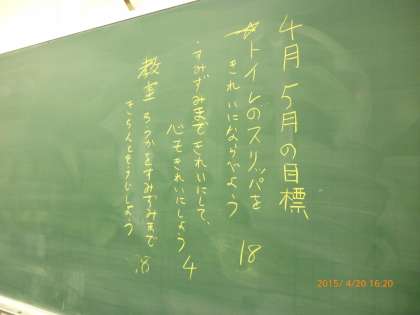 4月5月の目標
トイレのスリッパを
きれいにならべよう
18
・すみずみまできれいにして、
心もきれいにしよう
4
教室ろうかをすみずみまで
きちんとそうじしよう
8
2015/ 4/20 16:20